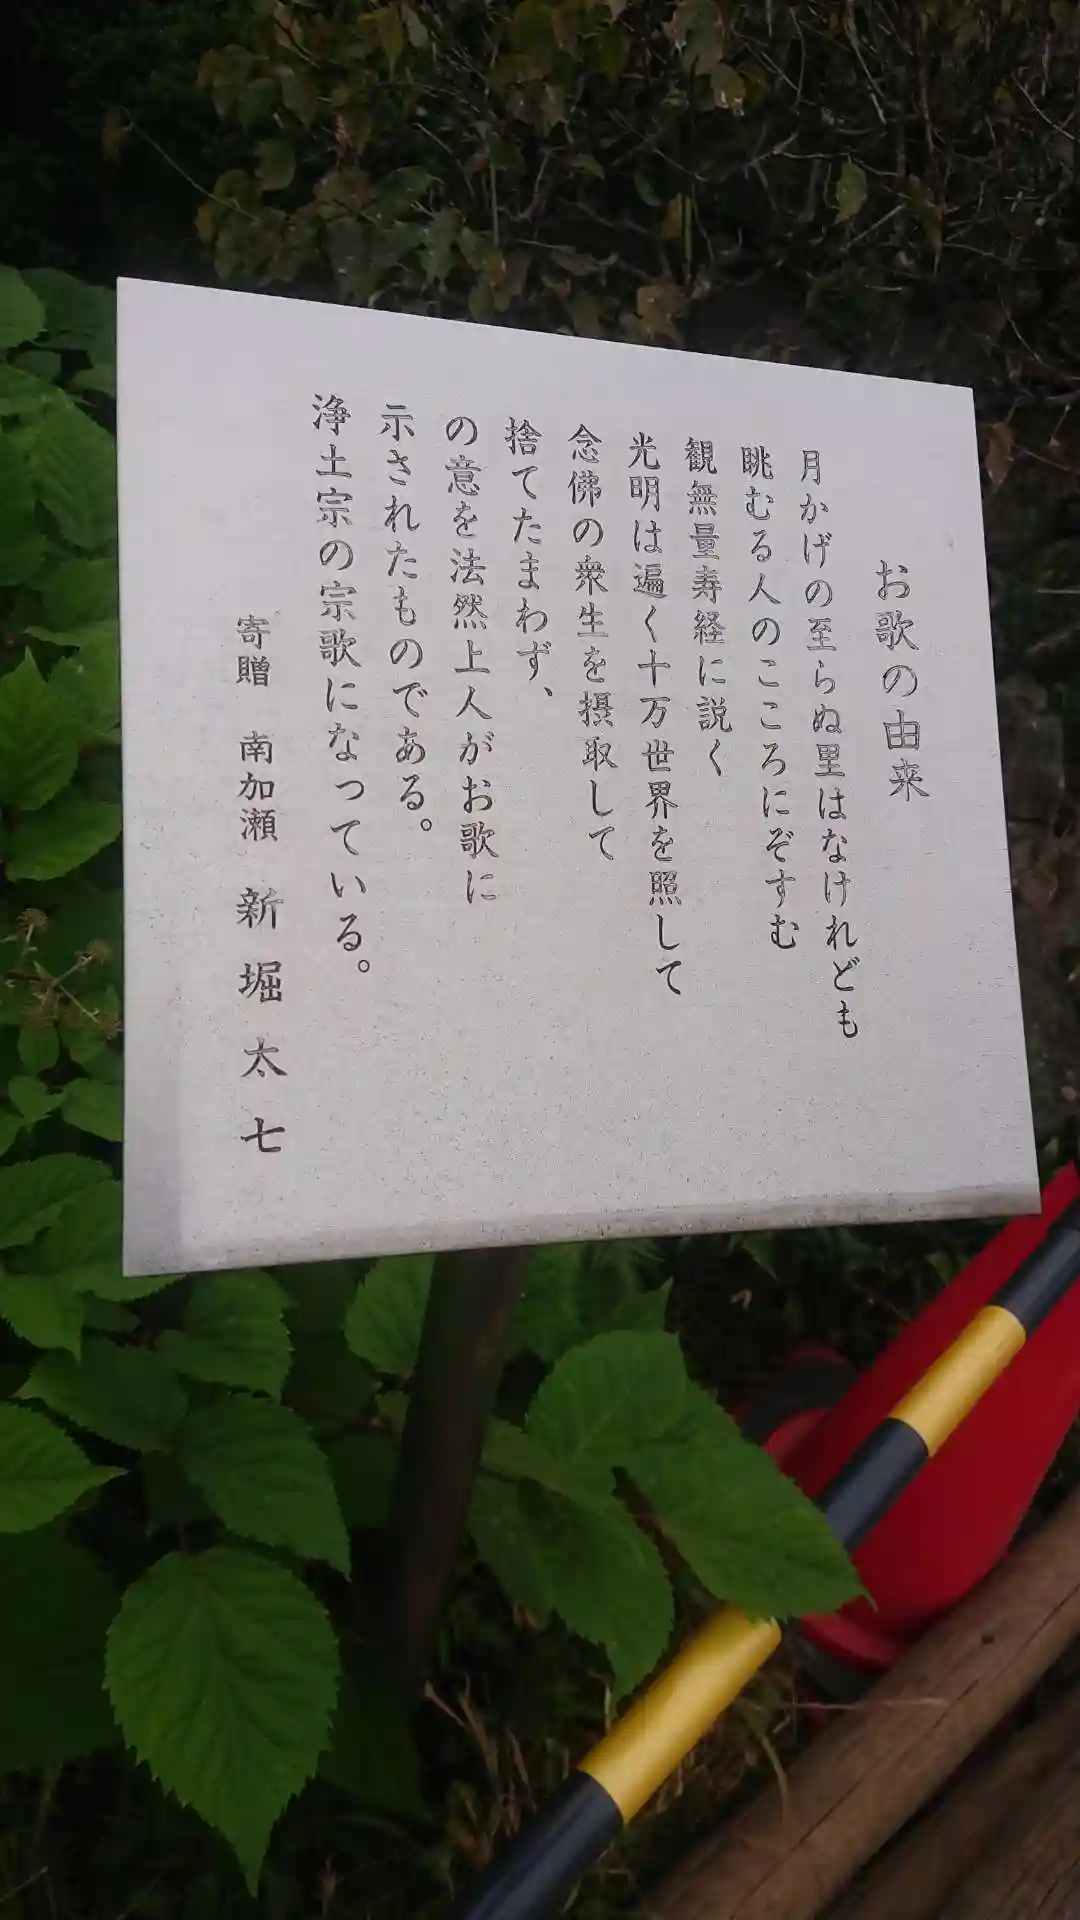 お歌の由来
月かげの至らぬ里はなけれども
眺むる人のこころにぞすむ
観無量寿経に説く
光明は遍く十万世界を照して
念佛の衆生を摂取して
捨てたまわず、
の意を法然上人がお歌に
示されたものである。
浄土宗の宗歌になっている。
寄贈 南加瀬 新堀太七